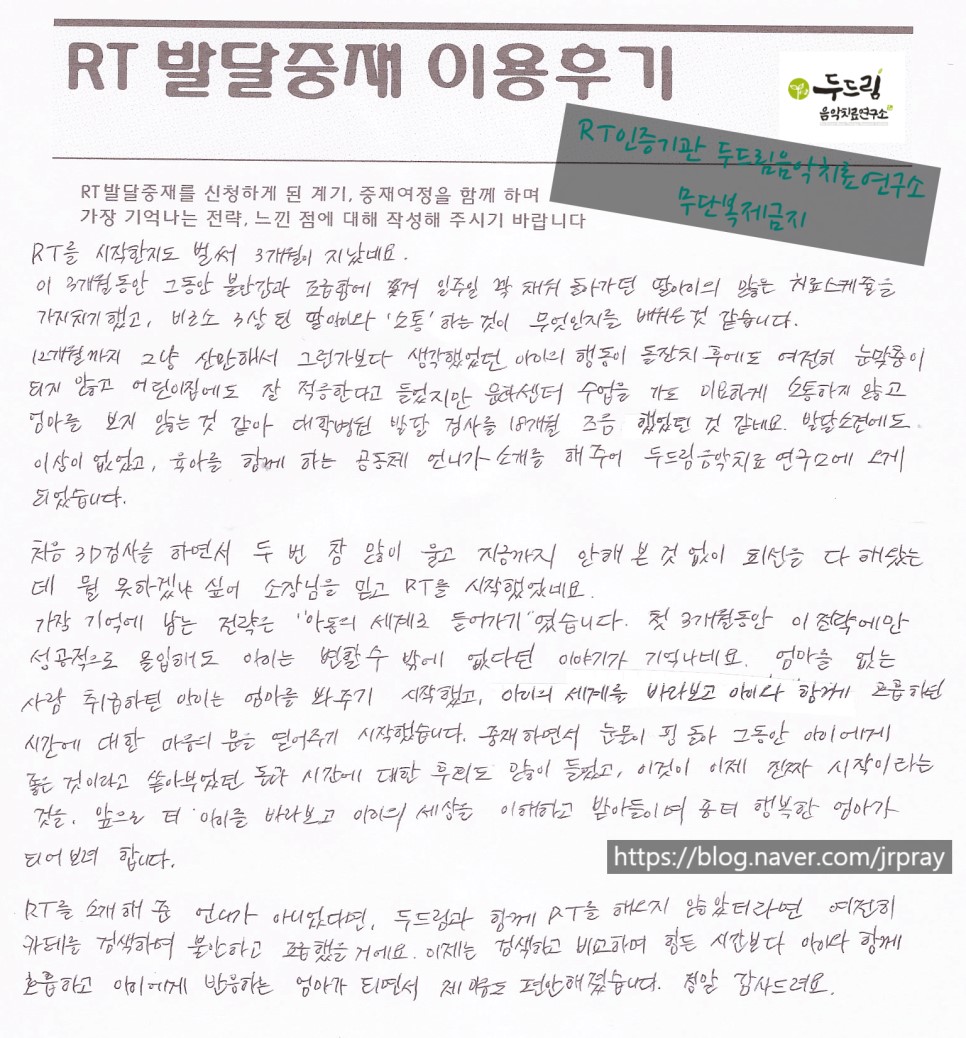 RT 발달중재 이용후기
두드림
음악치료연구소
RT인증기관 두드림음악치료연구소
무단복제금지
RT발달중재를 신청하게 된 계기, 중재여정을 함께 하며
가장 기억나는 전략, 느낀 점에 대해 작성해 주시기 바랍니다
RT를 시작한지도 벌써 3개월이 지났네요.
이 3개월동안 그동안 불안감과 조급함에 쫓겨 일주일 꽉 채워 돌아가던 딸아이의 많은 치료스케쥴을
가지치기 했고, 비로소 3살 된 딸아이와 '소통'하는것이 무엇인지를 배워온것 같습니다.
12개월까지 그냥 산만해서 그런가보다 생각했었던 아이의 행동이 돌잔치 후에도 여전히 눈맞춤이
되지 않고 어린이집에도 잘 적응한다고 들었지만 문화센터 수업을 가도 미묘하게 소통하지 않고
엄마를 보지 않는것 같아 대학병원 발달 검사를 18개월 즈음 했었던 것 같네요. 발달소견에도
이상이 없었고, 육아를 함께 하는 공동체 언니가 소개를 해주어 두드림음악치료 연구소에 오게
되었습니다.
처음 3D검사를 하면서 두 번 참 많이 울고 지금까지 안해 본 것 없이 최선을 다 해왔는
데 뭘 못하겠냐 싶어 소장님을 믿고 RT를 시작했었네요.
가장 기억에 남는 전략은 "아동의 세계로 들어가기"였습니다. 첫 3개월동안 이 전략에만
성공적으로 몰입해도 아이는 변할 수 밖에 없다던 이야기가 기억나네요. 엄마를 없는
사람 취급하던 아이는 엄마를 봐주기 시작했고, 아이의 세계를 바라보고 아이와 함께 호흡하던
시간에 대한 마음의 문을 열어주기 시작했습니다. 중재하면서 눈물이 핑 돌아 그동안 아이에게
좋은 것이라고 쏟아부었던 돈과 시간에 대한 후회도 많이 들었고, 이것이 이제 진짜 시작이라는
것을, 앞으로 더 아이를 바라보고 아이의 세상을 이해하고 받아들이며 좀더 행복한 엄마가
되어보려 합니다.
https://blog.naver.com/jrpray
RT를 소개해 준 언니가 아니었다면, 두드림과 함께 RT를 해오지 않았더라면 여전히
카페를 검색하며 불안하고 조급했을거에요. 이제는 검색하고 비교하며 힘든 시간보다 아이와 함께
호흡하고 아이에게 반응하는 엄마가 되면서 제 마음도 편안해졌습니다. 정말 감사드려요.